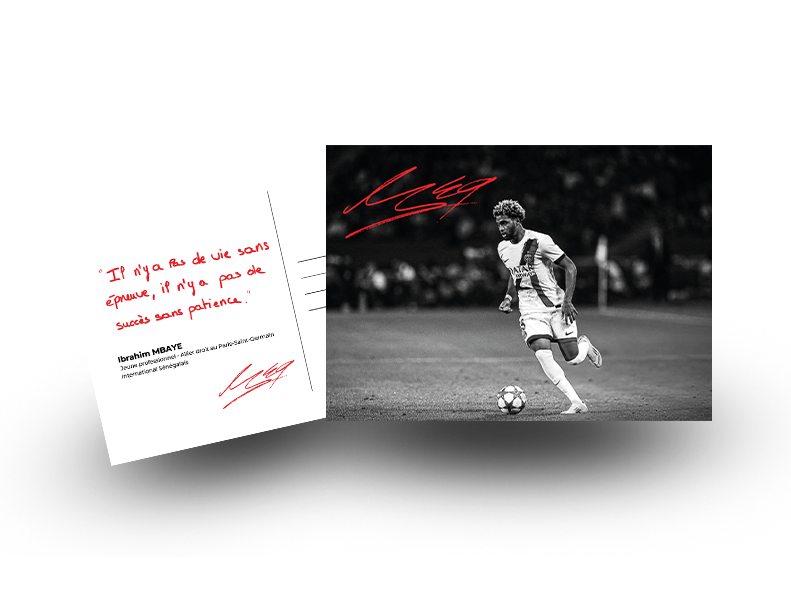 "Il n'y a pas de vie sans
épreuve, il n'y a pas de
succès sans patience."
Ibrahim MBAYE
Jeune professionnel - Ailier droit au Paris-Saint-Germain
International Sénégalais